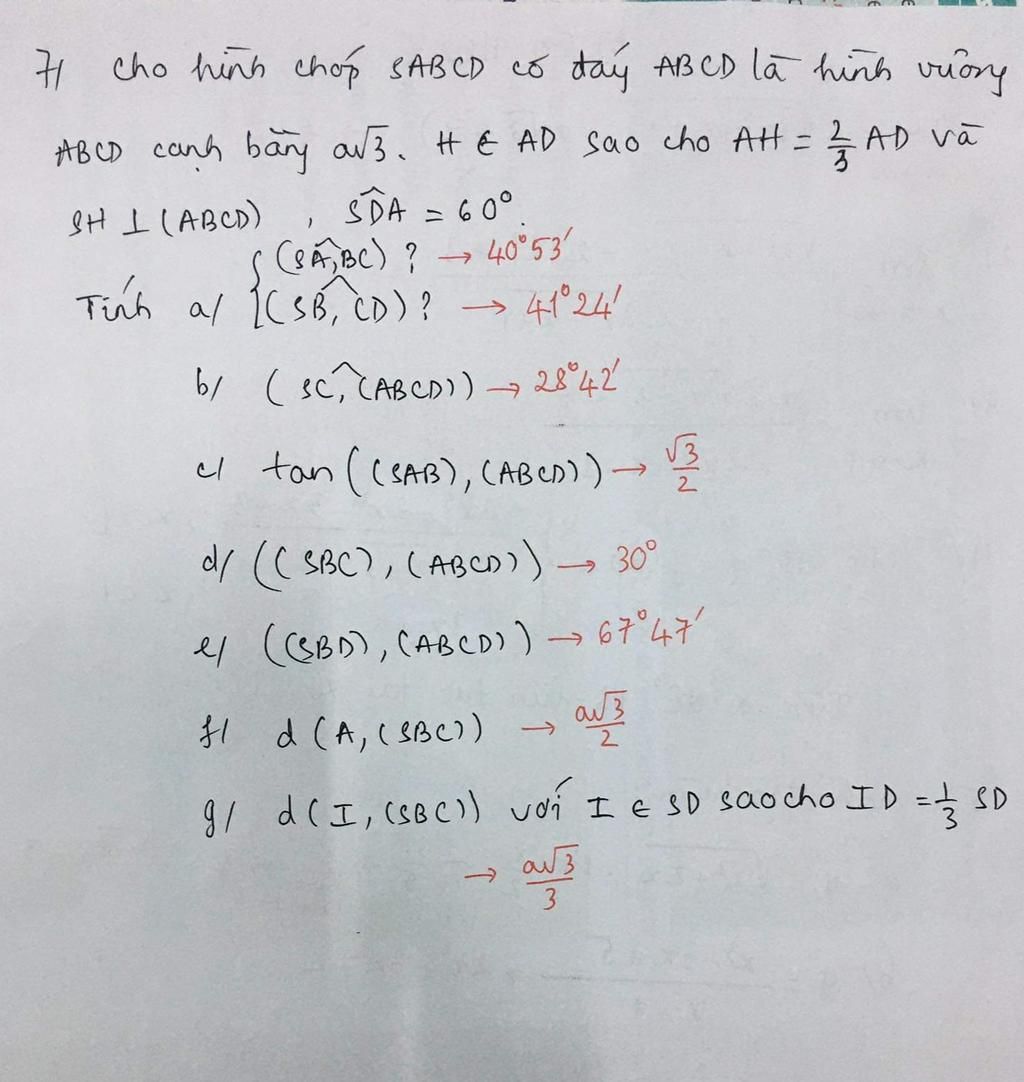 7/ Cho hình chóp SABCD có đáy ABCD là hình vuông
ABCD cạnh bằng a√3. H ∈ AD sao cho AH = 2/3 AD và
SH ⊥ (ABCD), SD̂A = 60°.
Tính a/ { (SA,̂BC) ? → 40°53'
(SB,̂ CD) ? → 41°24'
b/ (SC,̂ (ABCD)) → 28°42'
c/ tan ((SAB), (ABCD)) → √3/2
d/ ((SBC), (ABCD)) → 30°
e/ ((SBD), (ABCD)) → 67°47'
f/ d (A, (SBC)) → a√3/2
g/ d (I, (SBC)) với I ∈ SD sao cho ID = 1/3 SD
→ a√3/3